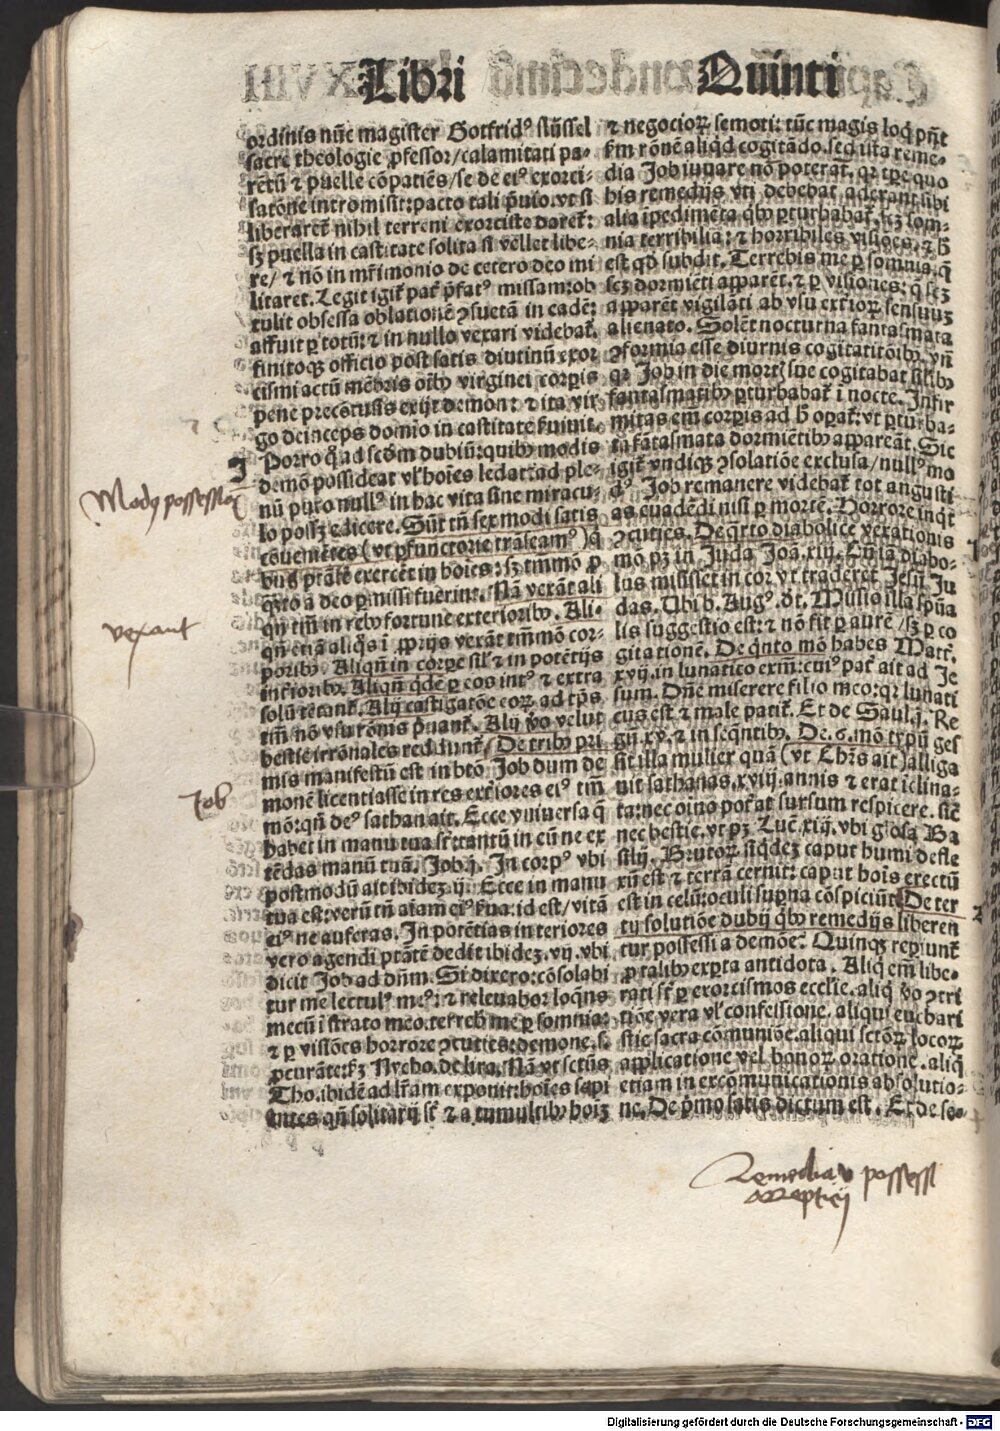 Libri Quinti
ordinis nũc magister Gotfridꝰ slüssel
sacre theologie ꝓfessor/calamitati pa-
rẽtũ ⁊ puelle cõpatiẽs/se de eiꝰ exorci-
satõne intromisit: pacto tali p̃uio. vt si
liberaret᷑ nihil terreni exorciste daret᷑:
sꝫ puella in castitate solita si vellet libe-
re/ ⁊ nõ in mr̃imonio de cetero deo mi
litaret. Legit igit᷑ pat᷑ p̃fatꝰ missam: ob
tulit obsessa oblationẽ ꝯsuetã in eadẽ:
affuit ꝑ totũ: ⁊ in nullo vexari videbat᷑.
finitoqꝫ officio post satis diutinũ exor
cismi actũ mẽbris oĩbꝰ virginei corꝑis
pene precõtussis exijt demon: ⁊ ita vir
go deinceps domio in castitate ẽuiuit.
Porro q̃ ad scðm dubiũ: quibꝰ modis
demõ possideat vl̓ hoĩes ledat: ad ple-
nũ puto nullꝰ in hac vita sine miracu-
lo possꝫ edicere. Sũt tñ sex modi satis
cõuenĩẽtes (vt ꝑfunctorie trãseamꝰ) q̃
bus ptãtẽ exercẽt in hoĩes: sꝫ tm̃mo ꝓ
q̃ꝫto a deo ꝑmissi fuerint. Nã vexãt ali
qñ tm̃ in rebꝰ fortune exterioribꝰ. Ali-
qñ etiã aliq̃s ĩ ꝓprijs vexãt tm̃mõ cor-
poribꝰ. Aliqñ in corꝑe sil̓ ⁊ in potẽtijs
inferioribꝰ. Aliqñ q̃dẽ ꝑ eos intꝰ ⁊ extra
solũ tẽtant᷑. Alij castigatõe eoꝝ ad tp̃s
tm̃/nõ vsu rõnis p̃uant᷑. Alij ꝟo velut
bestie irrõnales reddunt᷑/ De tribꝰ pri
mis manifestũ est in btõ Job dum de
monẽ licentiasse in res exteriores eiꝰ tm̃
mõ: qñ deꝰ sathan ait. Ecce vniuersa q̃
habet in manu tua sũt: tantũ in eũ ne ex
tẽdas manũ tuã. Job.j. In corpꝰ vbi
postmodũ ait ibidẽ.ij. Ecce in manu
tua est: verũ tñ aĩam eiꝰ ẽrua: id est/ vitã
eiꝰ ne auferas. In potẽtias interiores
vero agendi ptãtẽ dedit ibidẽ. vij. vbi
dicit Job ad dñm. Si dixero: cõsolabi
tur me lectulꝰ meꝰ: ⁊ releuabor loq̃ns
mecũ ĩ strato meo. terrebꝭ me ꝑ somnia:
⁊ ꝑ visiões horrore ꝯcuties: demone.s.
ꝓcurãte: ẽꝫ Nycho. de lira. Nã vt sctũs
Tho. ibidẽ ad lr̃am exponit: hoĩes sapi
entes qñ solitarij sũt ⁊ a tumultibꝰ hoĩꝫ
⁊ negocioꝝ semoti: tũc magis loq̃ pñt
ẽm rõnẽ aliq̃d cogitãdo. sed ista reme-
dia Job iuuare nõ poterãt. qꝛ tp̃e quo
his remedijs vti debebat aderant sibi
alia ĩpedimẽta q̃bꝰ ꝑturbabat᷑. scꝫ som-
nia terribilia: ⁊ horribiles visiões. ⁊ h̃
est qð subdit. Terrebis me ꝑ somnia. q̃
scꝫ dormiẽti apparẽt. ⁊ ꝑ visiones: q̃ scꝫ
apparẽt vigilãti ab vsu exterioꝝ sensuuꝫ
alienato. Solẽt nocturna fantasmata
ꝯformia esse diurnis cogitatiõibꝰ. vñ
qꝛ Job in die mortꝭ sue cogitabat silibꝰ
fantasmatibꝰ ꝑturbabat᷑ ĩ nocte. Infir
mitas em̃ corꝑis ad h̃ oꝑat᷑: vt ꝑturba-
ta fãtasmata dormiẽtibꝰ appareãt. Sic
igit᷑ vndiqꝫ ꝯsolatiõe exclusa/ nullꝰ mo
dꝰ Job remanere videbat᷑ tot angusti
as euadẽdi nisi ꝑ mortẽ. Horrore inq̃t
ꝯcuties. De q̃rto diabolice vexationis
mõ pꝫ in Juda Joã. xiij. Cũ iã diabo-
lus misisset in cor vt traderet Jesũ Ju
das. Vbi b. Augꝰ. dt. Missio illa sp̃ua
lis suggestio est: ⁊ nõ fit ꝑ aurẽ/ sꝫ ꝑ co
gitationẽ. De q̃nto mõ habes Matt᷑.
xvij. in lunatico extm̃: cuiꝰ pat᷑ ait ad Je
sum. Dñe miserere filio meo: qꝛ lunati
cus est ⁊ male patit᷑. Et de Saul.j. Re
gũ xv. ⁊ in seq̃ntibꝰ. De. 6. mõ typũ ges
sit illa mulier quã (vt Chrs̃ ait) alliga
uit sathanas. xviij. annis ⁊ erat ĩclina-
ta: nec oĩno poterat sursum respicere. sicut
nec bestie. vt pꝫ Luc̃ xiij. vbi glosa Ba
silij. Brutoꝝ siq̃dẽ caput humi defle
xũ est ⁊ terrã cernit: caput hoĩs erectũ
est in celũ: oculi supna cõspiciũt. De ter
tij solutiõe dubij q̃bꝰ remedijs liberen
tur possessi a demõe. Quinqꝫ reꝑiunt᷑
ꝓ talibꝰ exꝑta antidota. Aliq̃ em̃ libe-
rati sũt ꝑ exorcismos eccl̓ie. aliq̃ ꝟo ꝯtri
tiõe vera vl̓ confessione. aliqui euchari
stie sacra cõmuniõe. aliqui sctõꝝ locoꝝ
applicatione vel bonoꝝ oratione. aliq̃
etiam in excõmunicationis absolutio-
ne. De p̃mo satis dictum est. Et de se-
Modꝰ possessiõis
vexant
Job
Remedia possessi
arreptitij
Digitalisierung gefördert durch die Deutsche Forschungsgemeinschaft - DFG